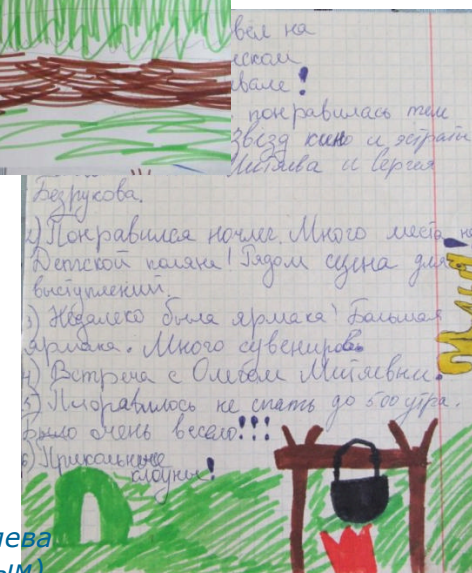 вёл на
еском
вале!
понравилась тем
Звезд кино и эстрады
Митяева и Сергея
Безрукова.
2) Понравился ночлег. Много места на
Детской поляне! Рядом сцена для
выступлений.
3) Недалеко была ярмака! Большая
ярмака. Много сувениров.
4) Встреча с Олегом Митяевым.
5) Пнравилось не спать до 5.00 утра.
Было очень весело!!!
6) Прикольные
клоуны!
лева
ым)